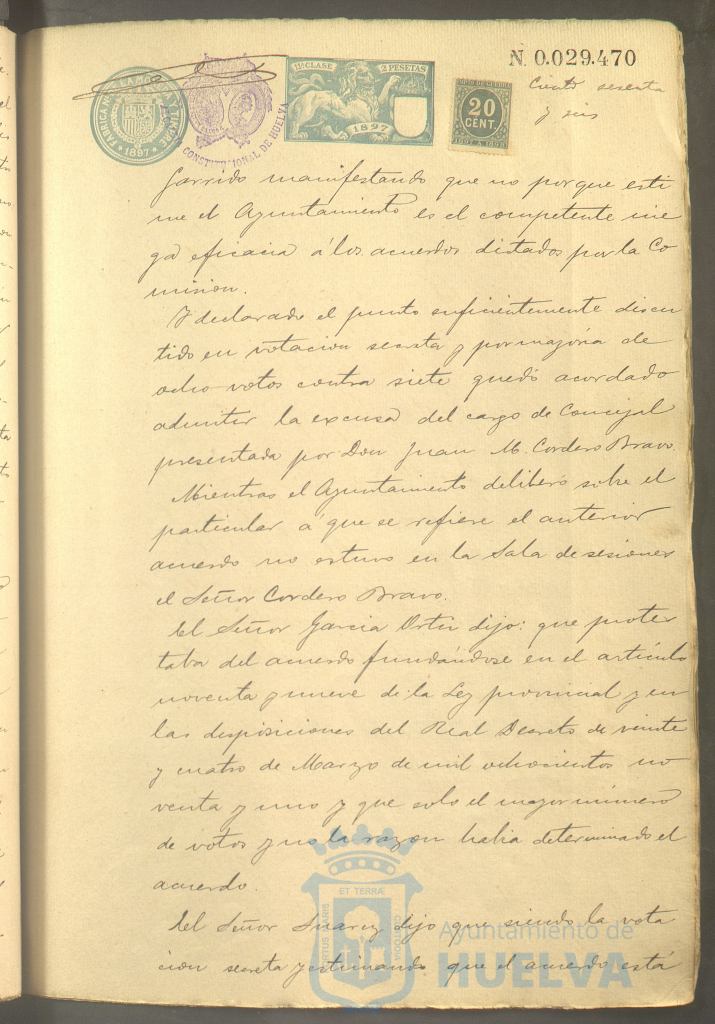 N. 0.029.470
Ciento sesenta
y seis
FABRICA NAL DE LA MONEDA Y TIMBRE
1897
CONSTITUCIONAL DE HUELVA
11ª CLASE 2 PESETAS
1897
20
CENT.
1897 A 1898
Garrido manifestando que no porque esti
me el Ayuntamiento es el competente nie
ga eficacia á los acuerdos dictados por la Co
mision.
Y declarado el punto suficientemente discu
tido en votacion secreta y por mayoría de
ocho votos contra siete quedó acordado
admitir la excusa del cargo de Concejal
presentada por Don Juan M. Cordero Bravo.
Mientras el Ayuntamiento deliberó sobre el
particular á que se refiere el anterior
acuerdo no estuvo en la Sala de sesiones
el Señor Cordero Bravo.
El Señor Garcia Ortiz dijo: que protes
taba del acuerdo fundándose en el artículo
noventa y nueve de la Ley provincial y en
las disposiciones del Real Decreto de veinte
y cuatro de Marzo de mil ochocientos no
venta y uno y que solo el mayor número
de votos y no la razon habia determinado el
acuerdo.
El Señor Suarez dijo que siendo la vota
cion secreta y estimando que el acuerdo está
ET TERRÆ
PORTUS MARIS
CUSTODIA
Ayuntamiento de
HUELVA